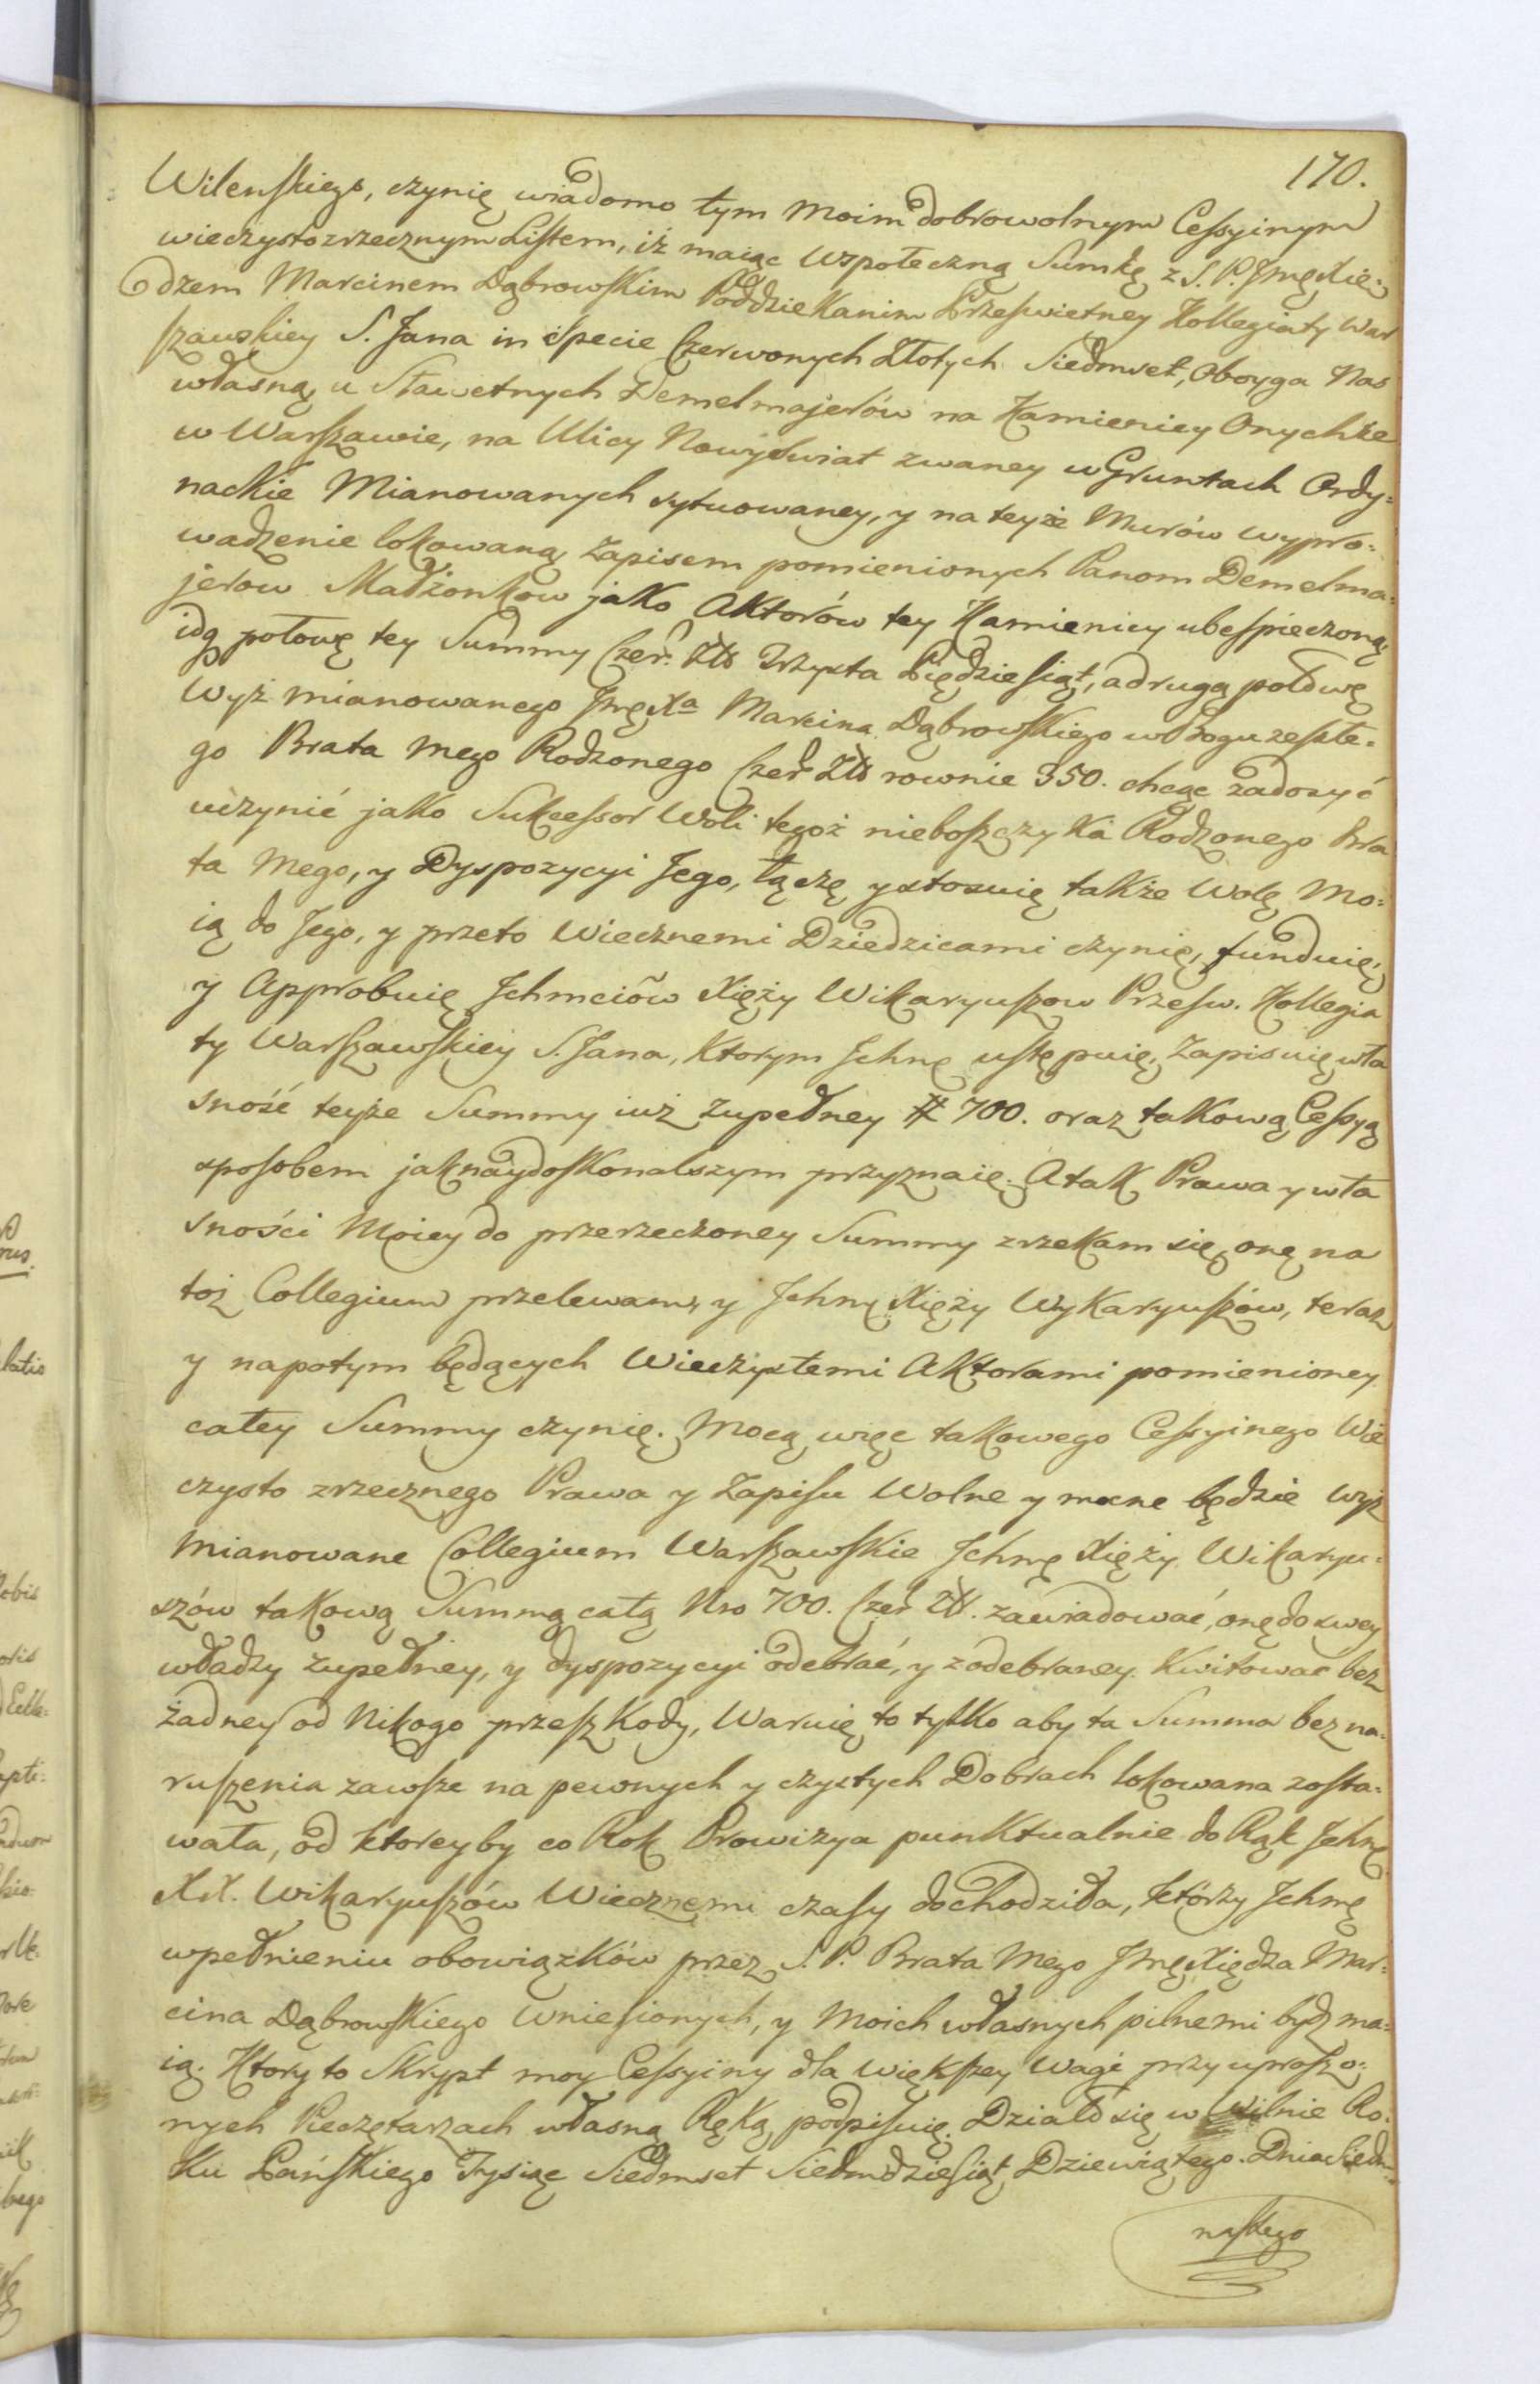 170.
Wilenskiego, czynię wiadomo tym Moim dobrowolnym Cessyinym
wieczystozrzecznym Listem, iż maiąc wspołeczną Summę z S. P. Jmę Xię-
dzem Marcinem Dąbrowskim Poddziekanim Prześwietney Kollegiaty War
szawskiey S. Jana in Specie Czerwonych Złotych Siedmset, oboyga Nas
własną, u Sławetnych Demelmajerów na Kamienicy Onychże
w Warszawie, na Ulicy Nowyswiat zwaney w Gruntach Ordy-
nackie Mianowanych sytuowaney, y na teyże Murów wypro-
wadzenie lokowaną, Zapisem pomienionych Panom Demelma-
jerow Małżonkow jako Aktorów tey Kamienicy ubespieczoną,
idq połowę tey Summy Czer. Złł Trzysta Piędziesiąt, a drugą połowę
Wyż mianowanego Jmę Xa Marcina Dąbrowskiego w Bogu zeszłe-
go Brata mego Rodzonego Czer Złł rownie 350. chcąc zadosyć
uczynić jako Sukcessor Woli tegoż nieboszczyka Rodzonego Bra
ta Mego, y Dyspozycyi Jego, łączę y stosuię także Wolę Mo-
ią do Jego, y przeto Wiecznemi Dziedzicami czynię, funduię,
y Approbuię Jchmciów Xięży Wikaryuszow Przesw. Kollegia
ty Warszawskiey S. Jana, Ktorym Jchmę ustępuię, Zapisuię wła
sność teyże Summy iuż zupełney # 700. oraz takową Cessyą
sposobem jaknaydoskonalszym przyznaię. A tak Prawa y wła
sności Moiey do przerzeczoney Summy zrzekam się, onę na
toż Collegium przelewam, y Jchmę Xięży Wykaryuszów, teraz
y napotym będących Wieczystemi Aktorami pomienioney
całey Summy czynię. Mocą więc takowego Cessyinego Wie
czysto zrzecznego Prawa y Zapisu Wolne y mocne będzie wyż
Mianowane Collegium Warszawskie Jchmę Xięży Wikaryu-
szów takową Summą całą Nro 700. Czer Złł. zawiadować, onę do swey
władzy zupełney, y dyspozycyi odebrać, y z odebraney Kwitować bez
żadney od Nikogo przeszkody, Waruię to tylko aby ta Summa bez na-
ruszenia zawsze na pewnych y czystych Dobrach lokowana zosta-
wała, od ktoreyby co Rok Prowizya punktualnie do Rąk Jchmę
XX. Wikaryuszów Wiecznemi czasy dochodziła, którzy Jchmę
wpełnieniu obowiązków przez S. P. Brata Mego Jmę Xiędza Mar-
cina Dąbrowskiego wniesionych, y Moich własnych pilnemi bydz ma-
ią. Ktory to Skrypt moy Cessyiny dla większey Wagi przy uproszo-
nych Pieczętarzach własną Ręką podpisuię. Działo się w Wilnie Ro-
ku Pańskiego Tysiąc Siedmset Siedmdziesiąt Dziewiątego. Dnia Siedm-
nastego